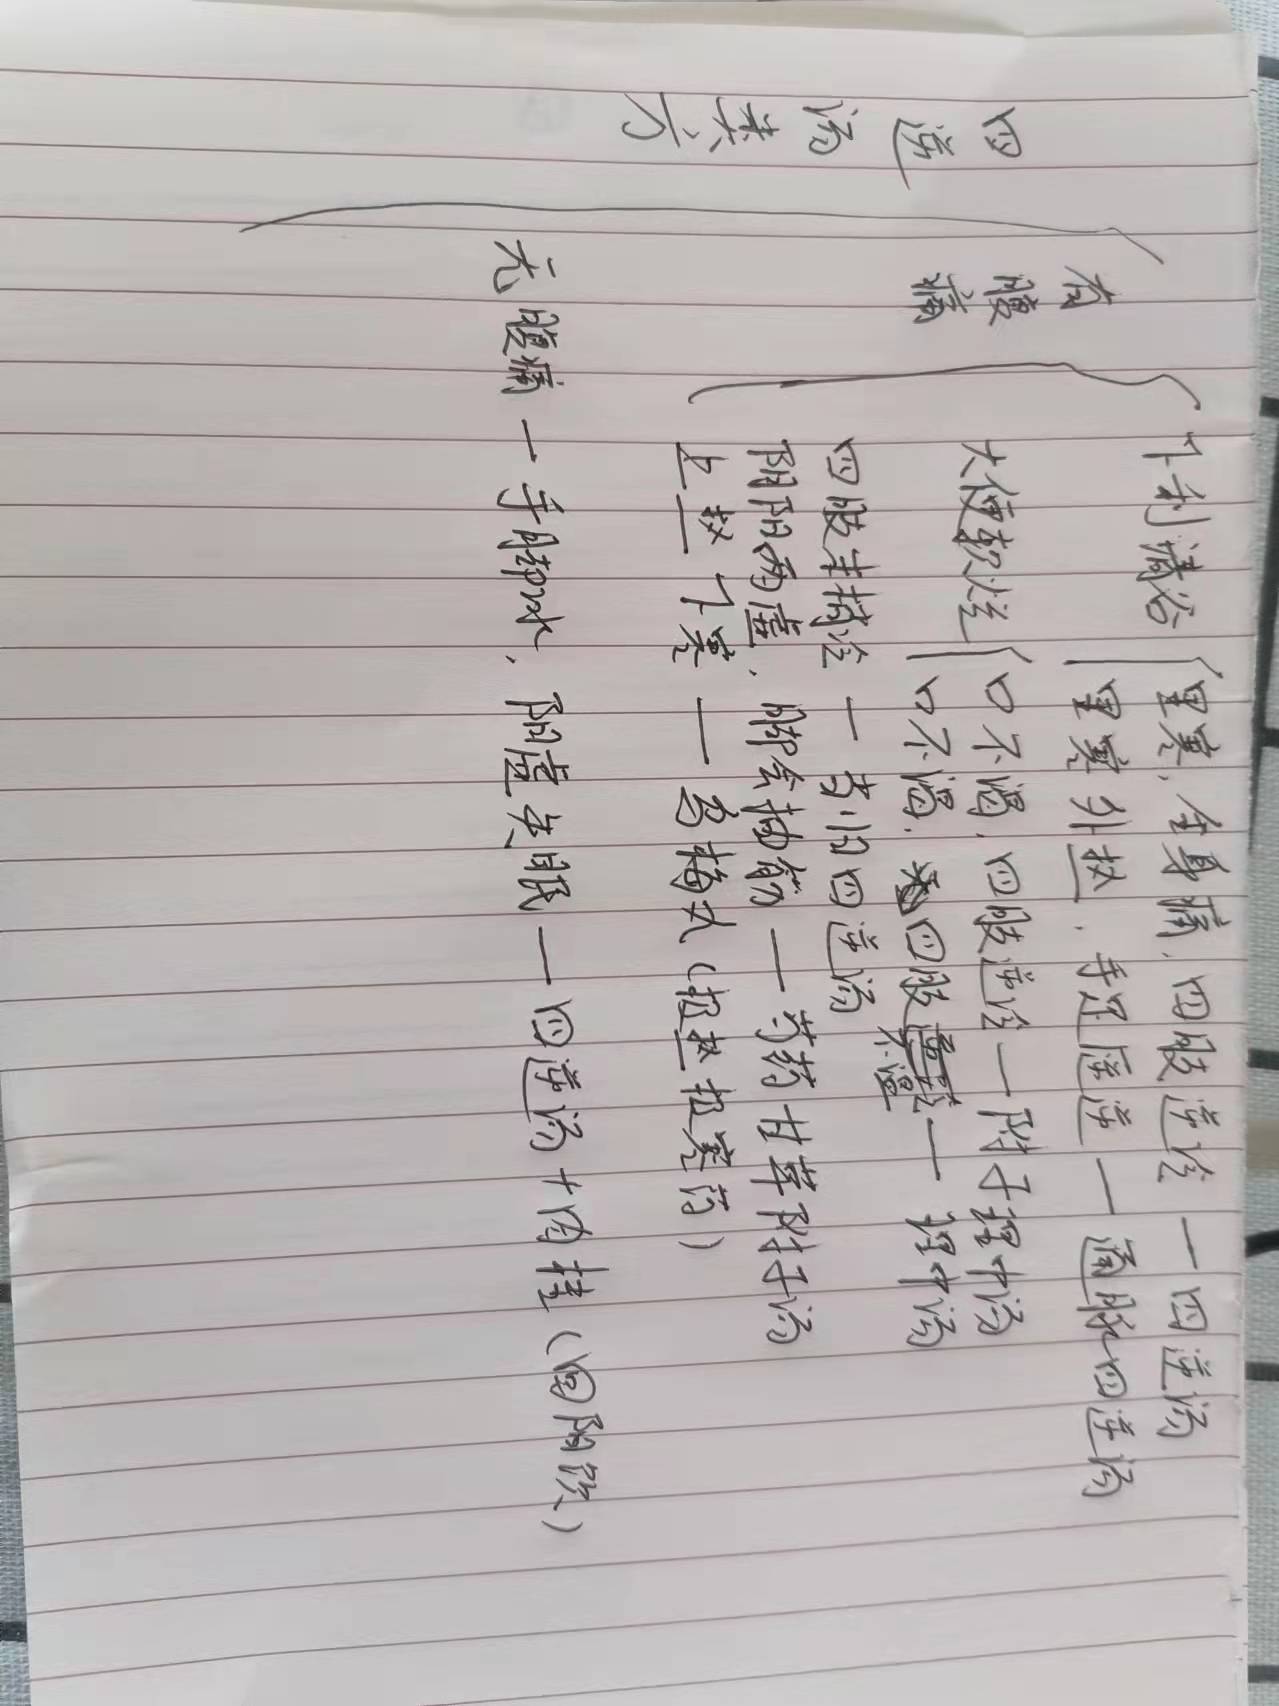 四逆汤类方
有腹痛
下利清谷
里寒,全身痛,四肢逆冷 — 四逆汤
里寒外热,手足厥逆 — 通脉四逆汤
大便软烂
口不渴,四肢逆冷 — 附子理中汤
口不渴,四肢不温 — 理中汤
四肢末梢冷 — 当归四逆汤
阴阳两虚,脚会抽筋 — 芍药甘草附子汤
上热下寒 — 乌梅丸(报热报寒的)
无腹痛 — 手脚冰,阳虚失眠 — 四逆汤+肉桂(回阳饮)